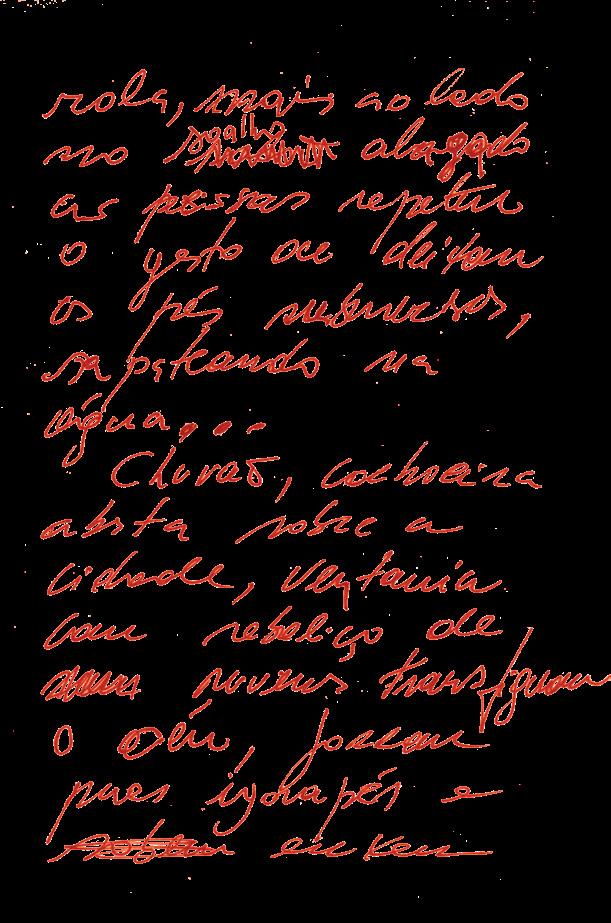 rola, mais ao lado
no soalho alagado
as pessoas repetem
o gesto de deixar
os pés submersos,
sapateando na
água...
Chuvão, cachoeira
aberta sobre a
cidade, ventania
com rebeliço de
nuvens transfiguram
o céu, jorram
igarapés e